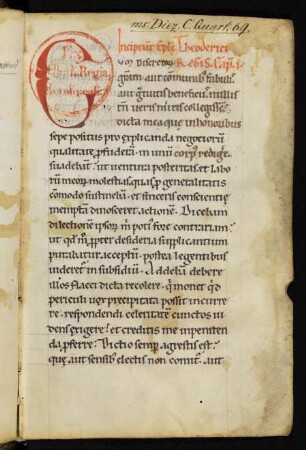 ms. Diez. C. Quart. 69.
Incipiunt Epłe Theoderici
Regis. Cap. I.
CVM disertorꝝ
gr̄am aut communibus fabulis
aut gratuitis beneficiis, nullis
tn̄ ueris meritis collegissem,
dicta mea que in honoribus
sepe positus pro explicanda negocioru
qualitate profudera, in unū corpus redige
suadebant. ut uentura posteritas et labo
rū meorꝫ molestias, quas p generalitatis
cōmodo sustinebā, et sinceris conscientię
inemptā dinosceret actionē. Dicebam
dilectionē ipsorꝫ m̄ potiꝰ fore contrariam:
ut qd̄ m̄ ꝓpter desideria supplicantium
putabatur acceptū, postea legentibus
uideret in
Addebā debere
illos flacci dicta recolere, q̄ monet qd̄
periculi uox precipitata possit incurre
re. respondendi celeritatē cunctos ui
exigere? et creditis me inpeniten
da ꝓferre? Dictio semp agrestis est.
quę aut sensibꝰ electis non comit. aut